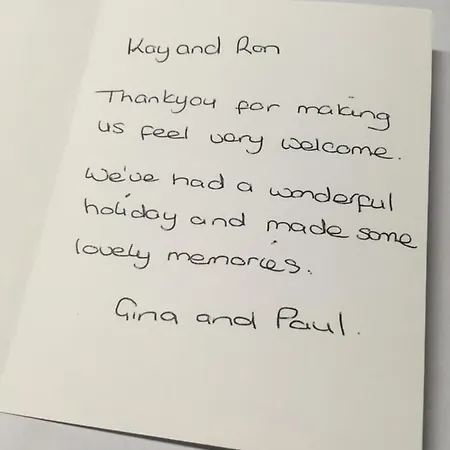 Kay and Ron
Thankyou for making
us feel very welcome.
We've had a wonderful
holiday and made some
lovely memories.
Gina and Paul.